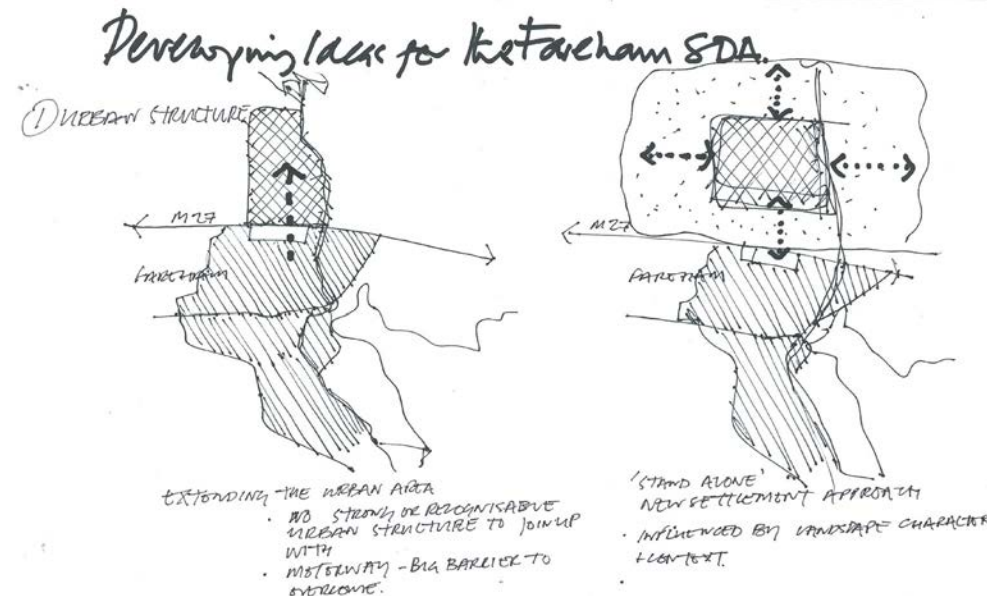 Developing Ideas for the Fareham SDA.
① URBAN STRUCTURE
M27
FAREHAM
EXTENDING THE URBAN AREA
· NO STRONG OR RECOGNISABLE
URBAN STRUCTURE TO JOIN UP
WITH
· MOTORWAY - BIG BARRIER TO
OVERCOME.
M27
FAREHAM
'STAND ALONE'
NEW SETTLEMENT APPROACH
· INFLUENCED BY LANDSCAPE CHARACTER
+ CONTEXT.
·